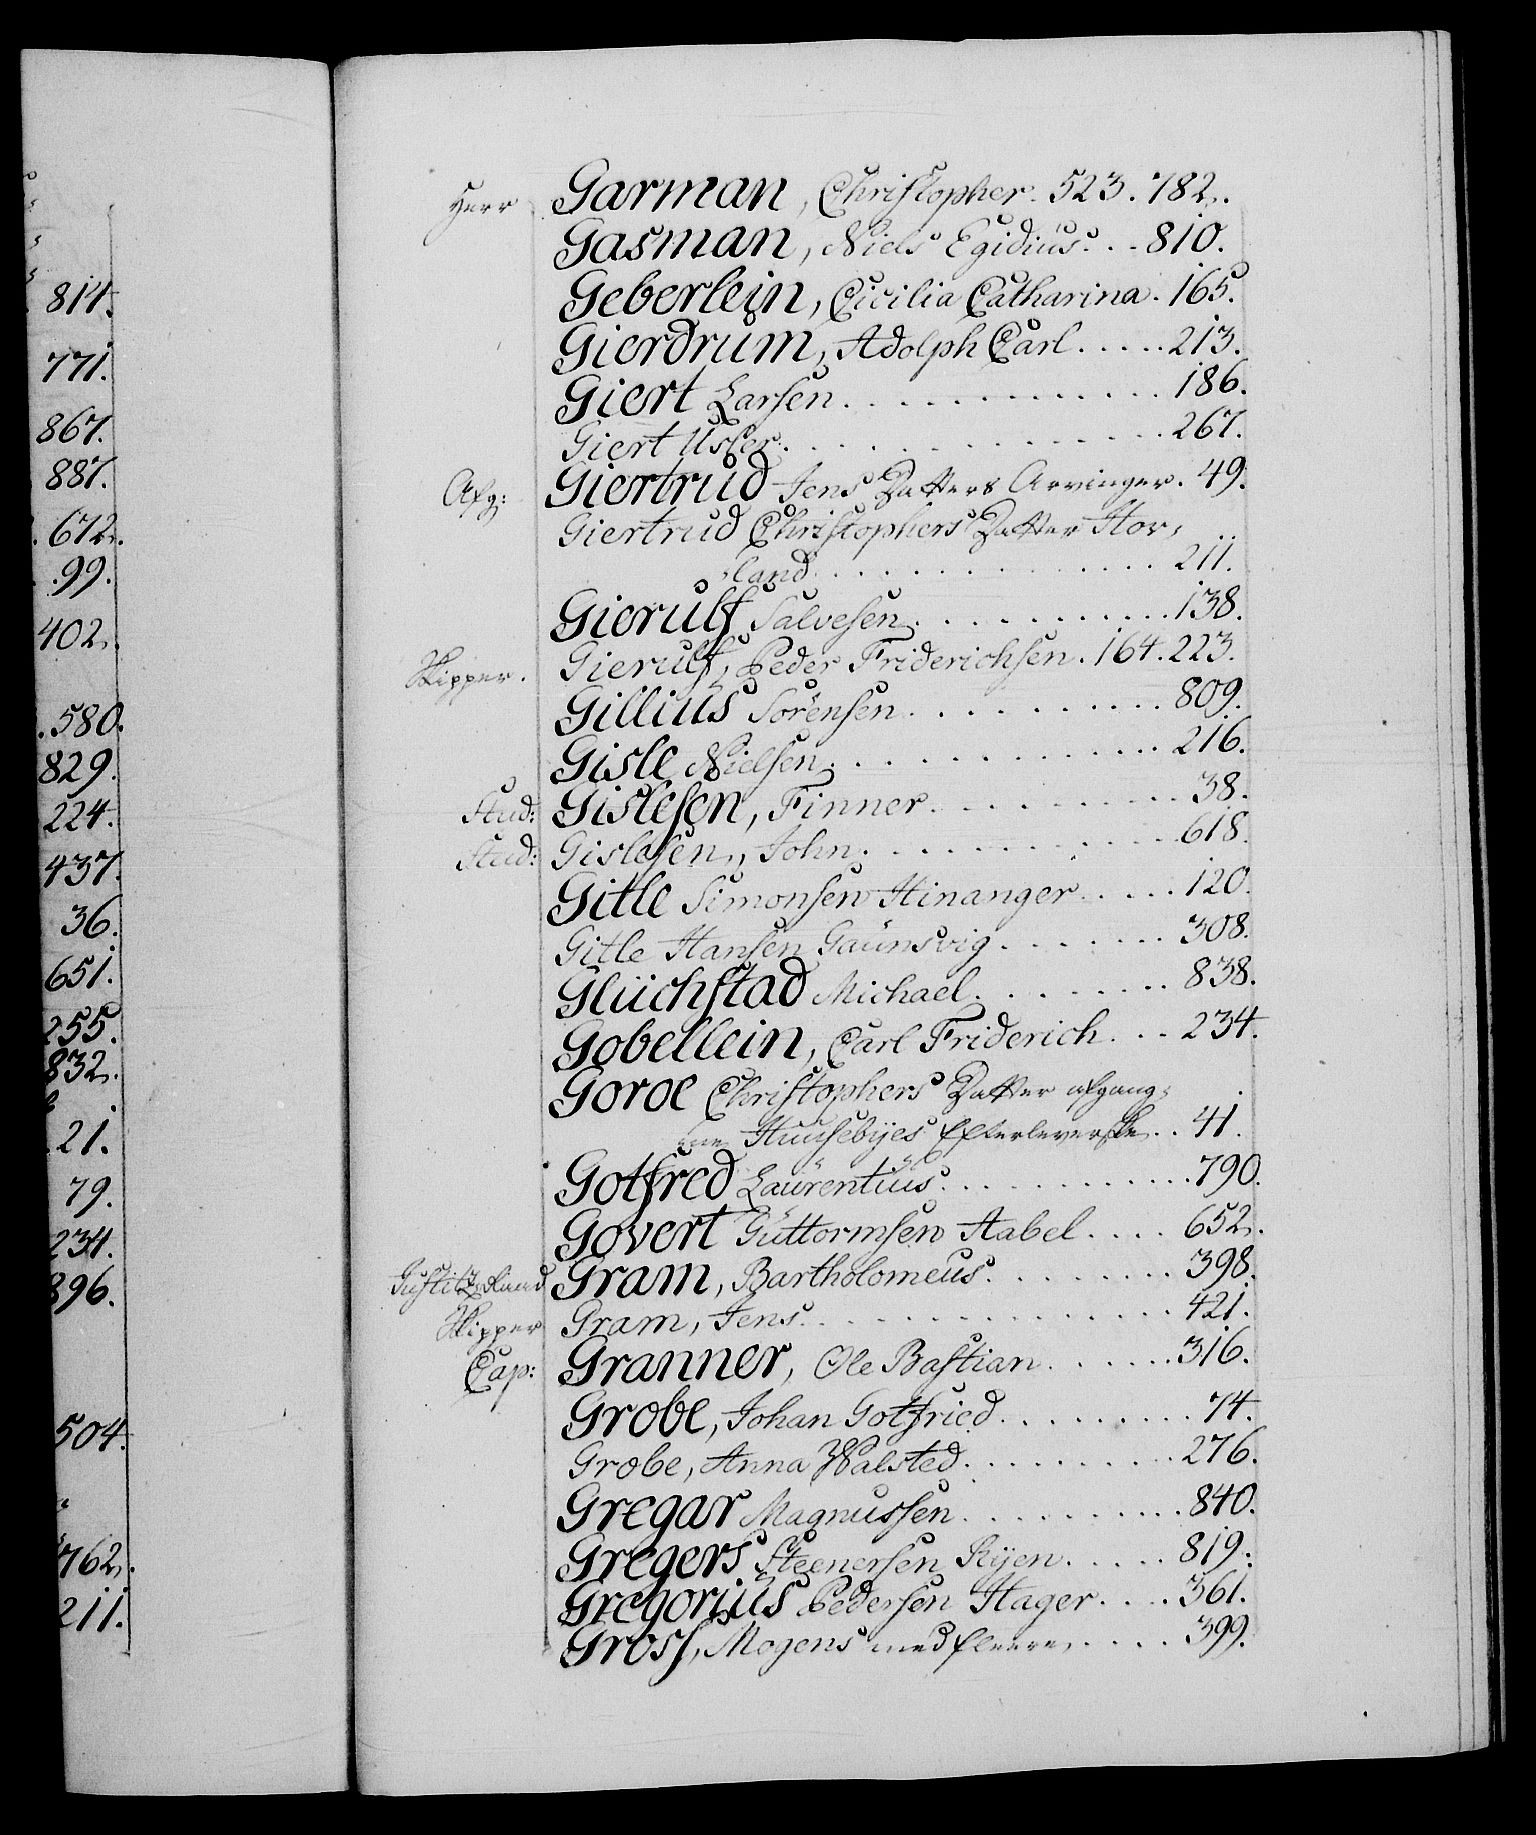 814.
771.
867.
887.
. 672.
. 99.
402.
. 580.
829.
224.
437.
36.
651.
255.
832.
. 21.
79.
234.
896.
504.
762.
211.
Herr Garman, Christopher. 523. 782.
Gasman, Niels Egidius. . . 810.
Geberlein, Cicilia Catharina. 165.
Gierdrum, Adolph Carl . . . . . 213.
Giert Larsen . . . . . . . . . . . . 186.
Giert . . . . . . . . . . . . . . 267.
Afg: Giertrud Jens Datters Arvinger. 49.
Giertrud Christophers Datter Hov,
land . . . . . . . . . . . . . . 211.
Gierulf Salvesen . . . . . . . . . . . 138.
Skipper. Gierulf, Peder Friderichsen. 164. 223.
Gillius Sörensen . . . . . . . . . . 809.
Gisle Nielsen . . . . . . . . . . . . 216.
Stud: Gislesen, Finner . . . . . . . . . . 38.
Stud: Gislesen, John . . . . . . . . . . . 618.
Gitle Simonsen Hinanger . . . . . 120.
Gitle Hansen Gaünsvig . . . . . . . 308.
Glüchstad Michael . . . . . . . . 838.
Gobellein, Carl Friderich . . . 234.
Goroe Christophers Datter afgang,
ne Huusebyes Efterleverske . . 41.
Gotfred Laürentiüs . . . . . . . . . . . . 790.
Govert Güttormsen Aabel . . . . 652.
Justitz Raad Gram, Bartholomeus . . . . . . . . 398.
Skipper Gram, Jens . . . . . . . . . . . . . . 421.
Cap: Granner, Ole Bastian . . . . . . . 316.
Grobe, Johan Gotfried . . . . . . . . . 74.
Grobe, Anna Walsted . . . . . . . . . . 276.
Gregar Magnussen . . . . . . . . . . . 840.
Gregers Steenersen Ryen . . . . . 819.
Gregoriüs Pedersen Hager . . . . 361.
Gross, Mogens med fleere . . . . . 399.